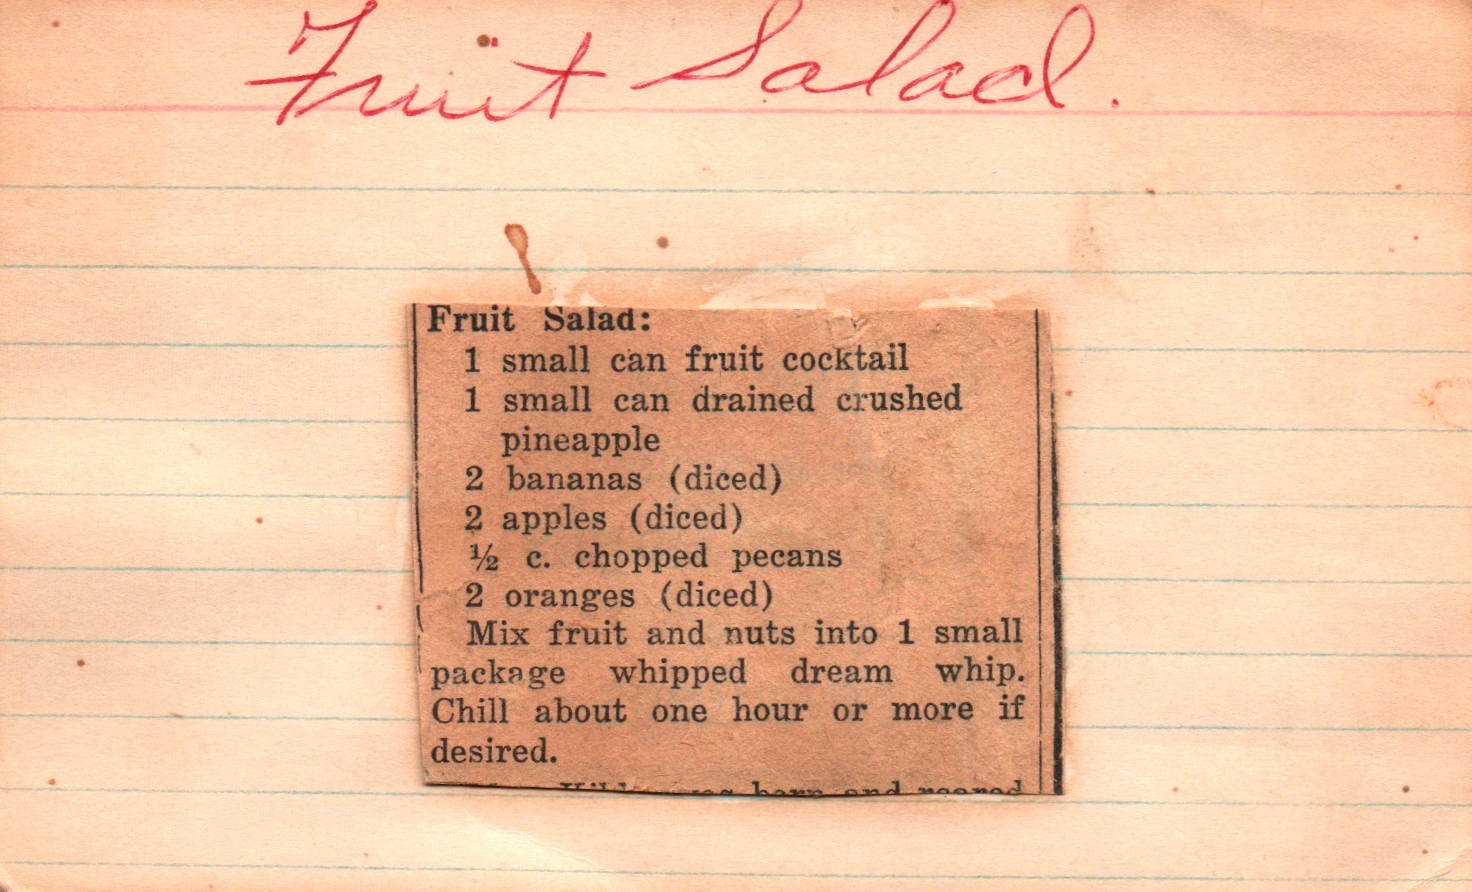 Fruit Salad.
Fruit Salad:
1 small can fruit cocktail
1 small can drained crushed
pineapple
2 bananas (diced)
2 apples (diced)
½ c. chopped pecans
2 oranges (diced)
Mix fruit and nuts into 1 small
package whipped dream whip.
Chill about one hour or more if
desired.
born and reared